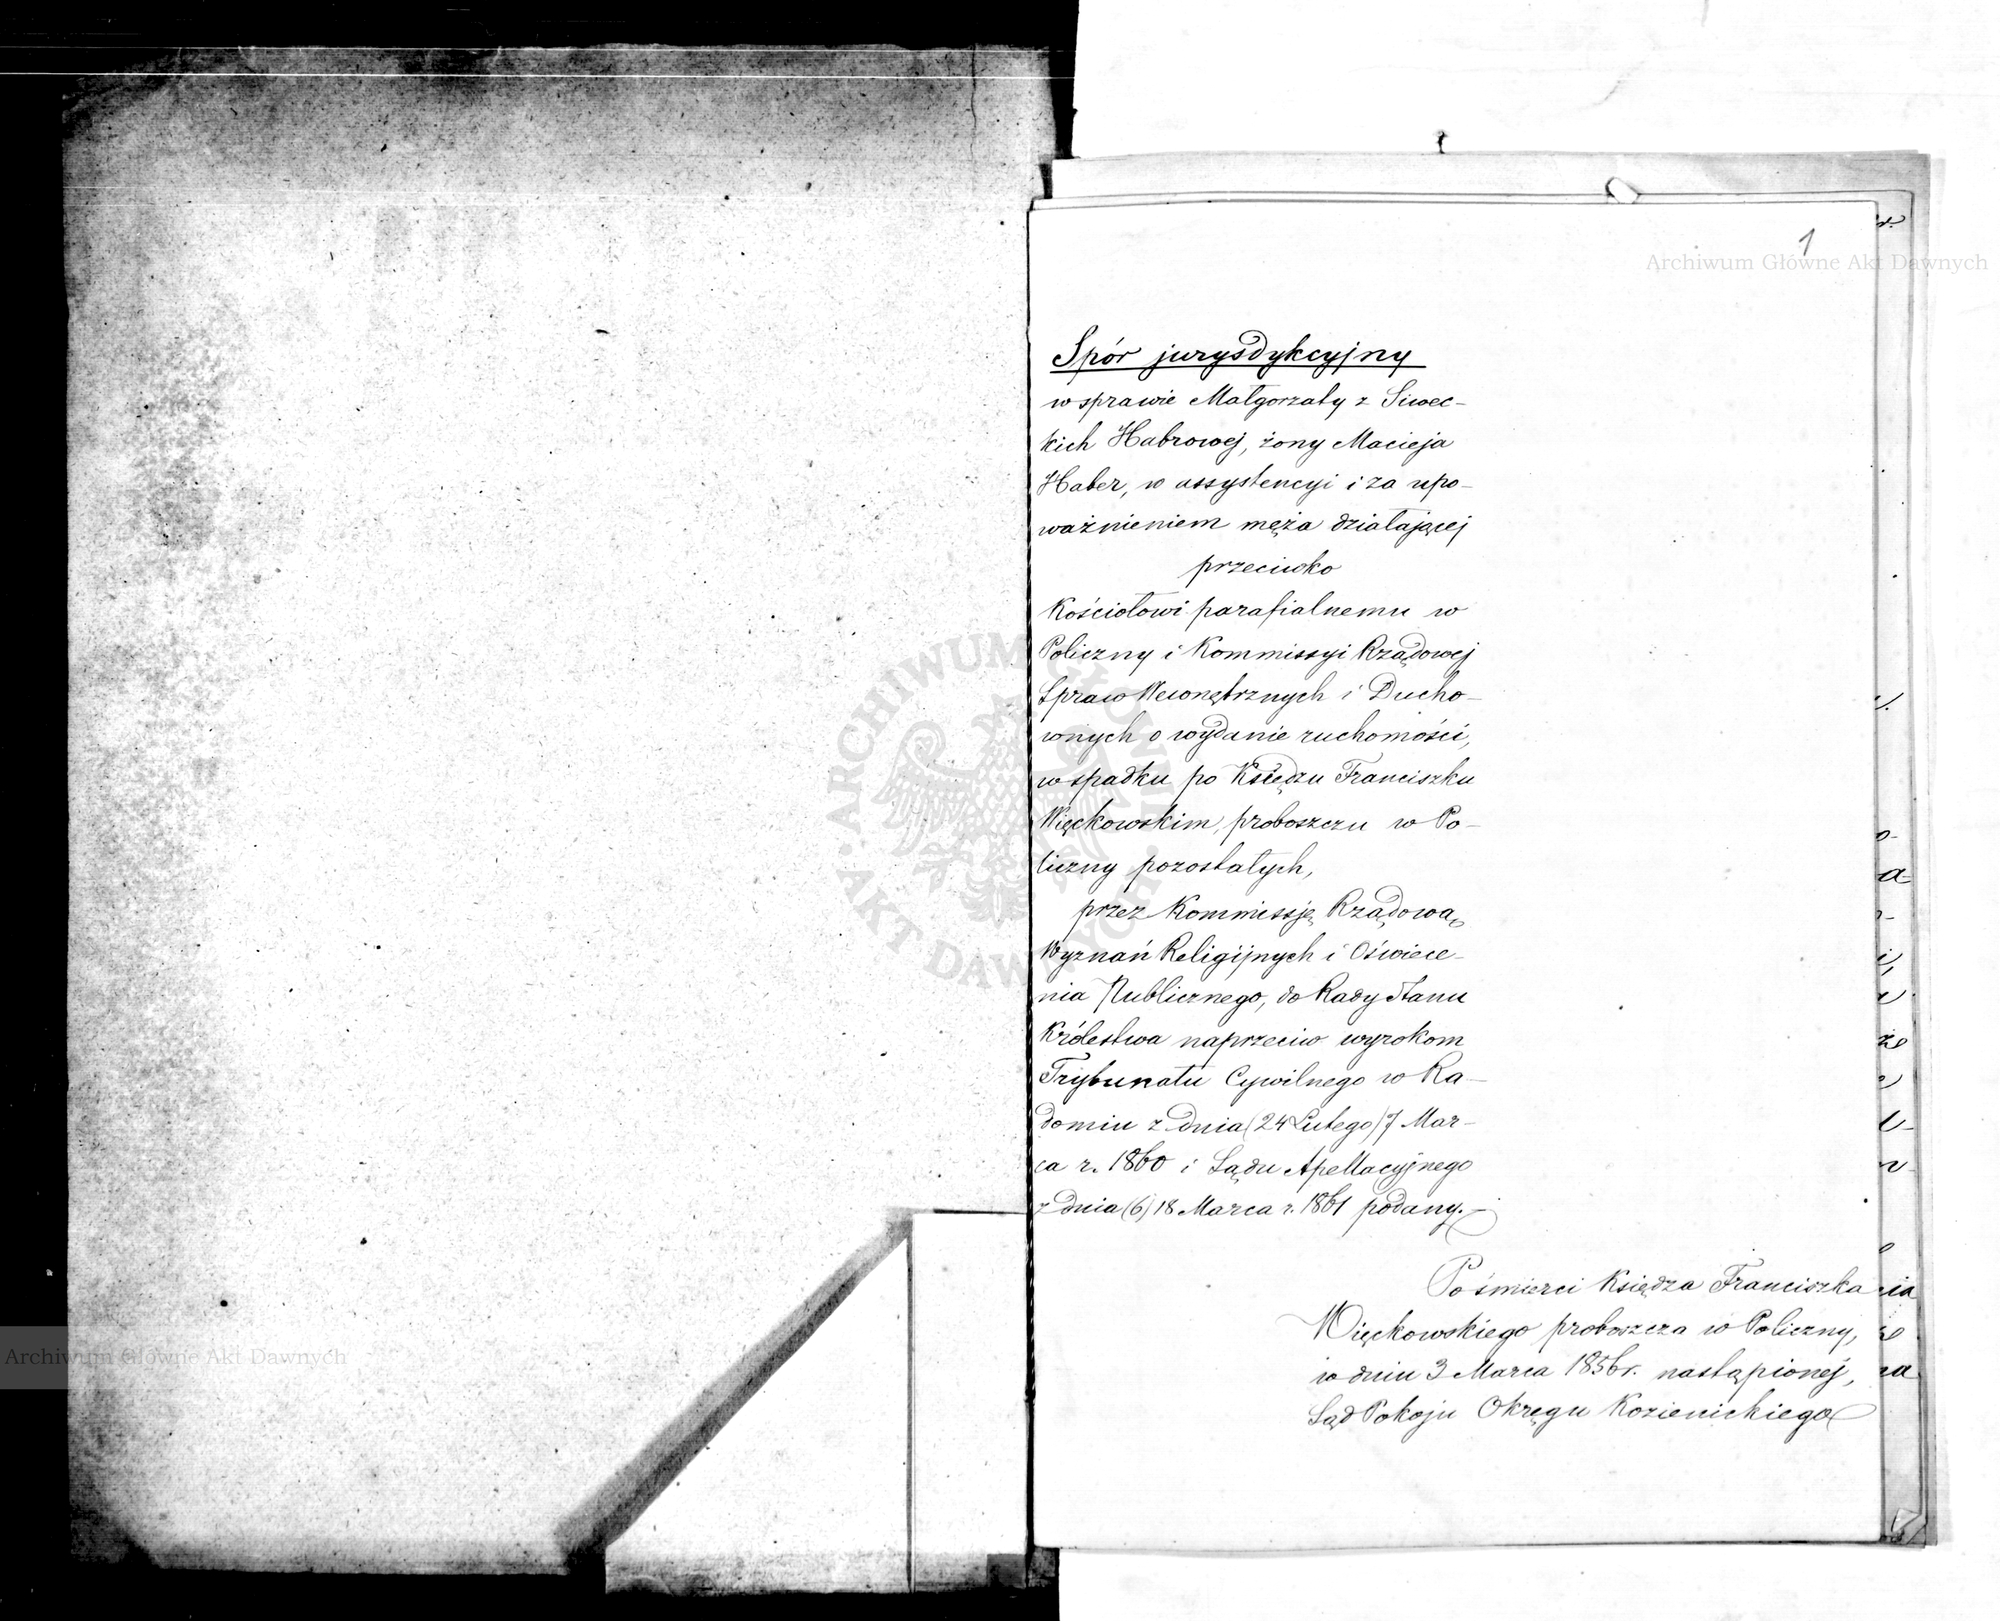 1
Archiwum Główne Akt Dawnych
Spór jurysdykcyjny
w sprawie Małgorzaty z Siwec-
kich Habrowej, żony Macieja
Haber, w assystencyi i za upo-
ważnieniem męża działającej
przeciwko
Kościołowi parafialnemu w
Policzny i Kommissyi Rządowej
Spraw Wewnętrznych i Ducho-
wnych o wydanie ruchomości,
w spadku po Księdzu Franciszku
Więckowskim, proboszczu w Po-
liczny pozostałych,
przez Kommissję Rządową
Wyznań Religijnych i Oświece-
nia Publicznego, do Rady Stanu
Królestwa naprzeciw wyrokom
Trybunału Cywilnego w Ra-
domiu z dnia (24 Lutego) 7 Mar-
ca r. 1860 i Sądu Apellacyjnego
z dnia (6) 18 Marca r. 1861 podany.-
Po śmierci Księdza Franciszka
Więckowskiego proboszcza w Policzny,
w dniu 3 Marca 1856 r. nastąpionej,
Sąd Pokoju Okręgu Kozienickiego
ARCHIWUM
AKT DAWNYCH
Archiwum Główne Akt Dawnych